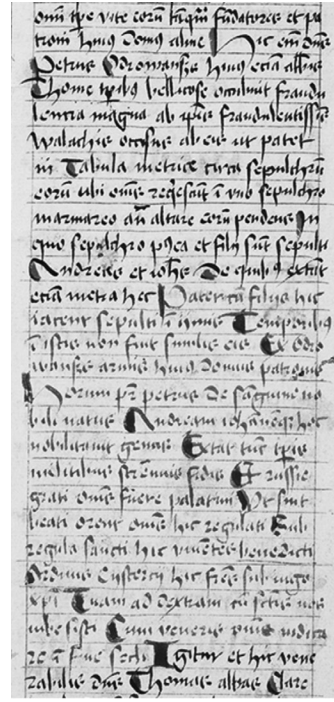 omni tpe vite eorum tamqm fundatores et pa
troni huius domus alme Hic enim dns
Petrus Odrowansz huius etiam abbtis
Thome tpibus bellicose occubuit fraudu
lentia magna ab ipis fraudulentissimis
walachis occisus ab eis ut patet
in Tabula metrice circa sepulchrum
eorum ubi omnes requiescunt in uno sepulchro
marmareo an altare eorum pendens In
quo sepulchro postea et filii sunt sepulti
Andreas et iohes De quibus extant
etiam metra hec Pater cum filiis hic
iacent sepulti in imis Temporibus
in istis non fuit similis eis Ex odro
wansze armis huius domus patronus
Horum pr petrus de sanguine no
bili natus Andream iohanemque hec
nobilitavit genitos Extat tunc tpis
militibus strennuis fidus Et russie
grati omnes fuere palatini Ut sint
beati orent omnes hic regulati Sub
regula sancti hic viventes benedicti
Ordinis cystercii hic fres sub iugo
xpi Tuam ad dextram cum sctis nos
iube sisti Cum veneris pius iudica
re in fine secli Igitur et hic vene
rabilis dns Thomas abbas Clare